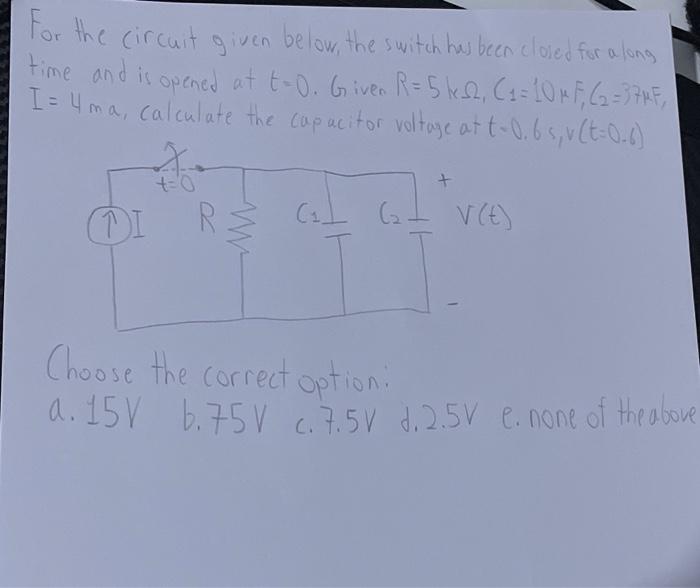 For the circuit given below, the switch has been closed for a long
time and is opened at t=0. Given R=5kΩ, C1=10μF, C2=37μF,
I=4ma, calculate the capacitor voltage at t=0.6s, v(t=0.6)
t=0
+
I R C1 C2 V(t)
-
Choose the correct option:
a. 15V b. 75V c. 7.5V d. 2.5V e. none of the above